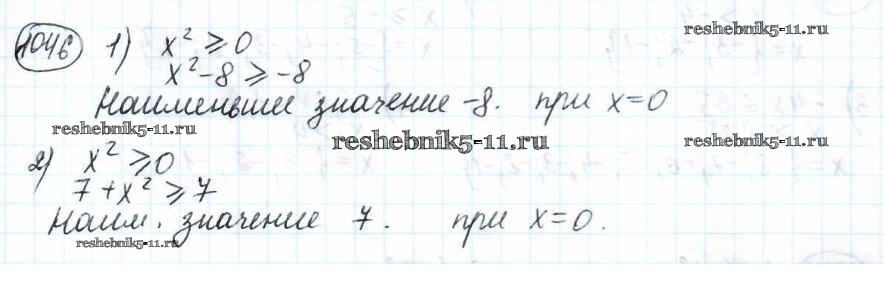 1046 1) x² ⩾ 0
x² - 8 ⩾ -8
Наименьшее значение -8. при x=0
2) x² ⩾ 0
7 + x² ⩾ 7
Наим. значение 7. при x=0.
reshebnik5-11.ru
reshebnik5-11.ru
reshebnik5-11.ru
reshebnik5-11.ru
reshebnik5-11.ru